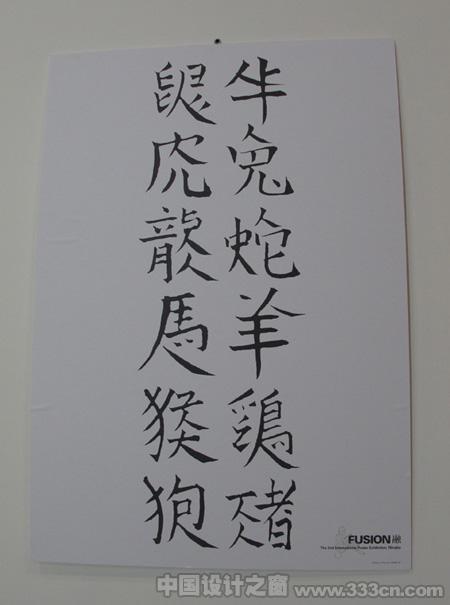 鼠牛
虎兔
龍蛇
馬羊
猴鷄
狗猪
FUSION 融
The 2nd International Poster Exhibition, Ningbo
中国设计之窗 www.333cn.com